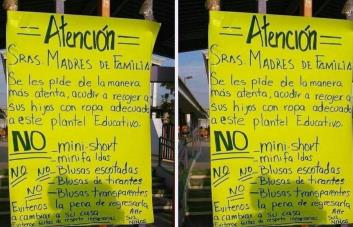 Atención
Sras. Madres de Familia
Se les pide de la manera
más atenta, acudir a recoger a
sus hijos con ropa adecuada
a este plantel Educativo.
NO
mini-short
minifaldas
NO NO Blusas escotadas
NO Blusas de tirantes
NO Blusas transparentes
Evítenos la pena de regresarla
a cambiar a su casa
Atte
Atención
Sras. Madres de Familia
Se les pide de la manera
más atenta, acudir a recoger a
sus hijos con ropa adecuada
a este plantel Educativo.
NO
mini-short
minifaldas
NO NO Blusas escotadas
NO Blusas de tirantes
NO Blusas transparentes
Evítenos la pena de regresarla
a cambiar a su casa
Atte